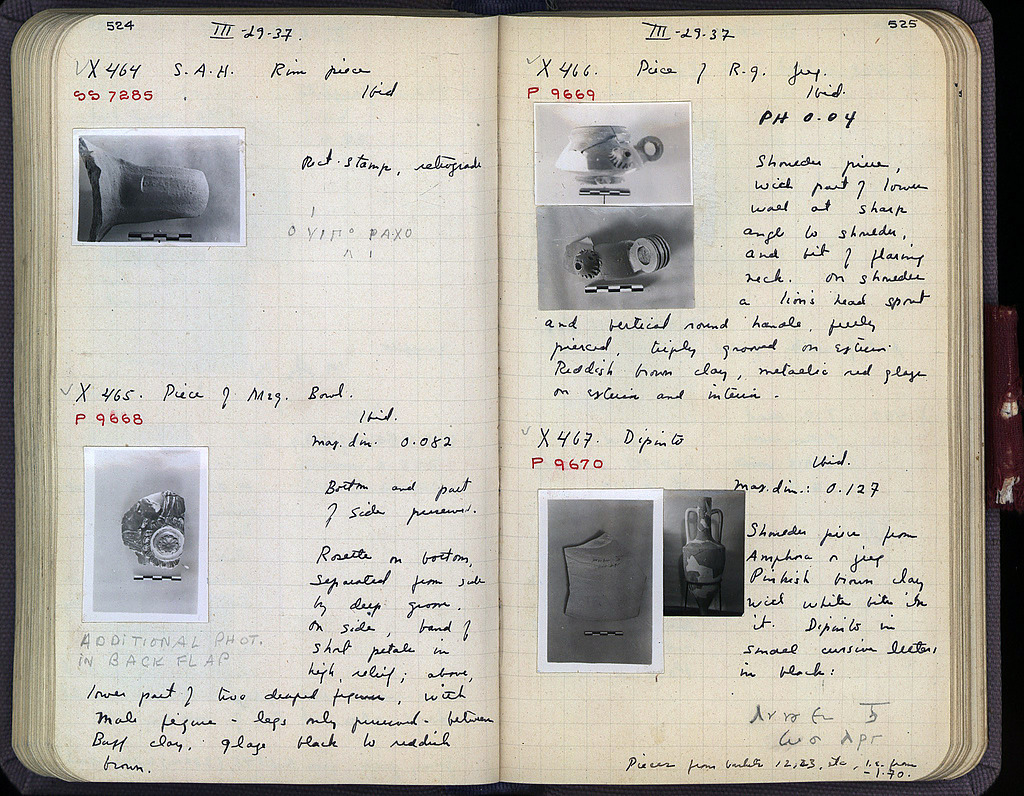 524
III -29-37.
X 464 S.A.H. Rim piece
SS 7285
Ibid
Rect. stamp, retrograde
X 465. Piece of Meg. Bowl.
P 9668
Ibid.
Max. dim. 0.082
Bottom and part
of side preserved.
Rosette on bottom,
separated from side
by deep groove.
On side, band of
short petals in
high relief; above,
lower part of two draped figures, with
male figure - legs only preserved - between
Buff clay. glaze black to reddish
brown.
ADDITIONAL PHOT.
IN BACK FLAP
525
III -29-37
X 466. Piece of R.g. jug.
P 9669
Ibid.
PH 0.04
Shoulder piece,
with part of lower
wall at sharp
angle to shoulder,
and bit of flaring
neck. On shoulder
a lion's head spout
and vertical round handle, freely
pierced, triply grooved on exterior.
Reddish brown clay, metallic red glaze
on exterior and interior.
X 467. Dipinto
P 9670
Ibid.
Max. dim.: 0.127
Shoulder piece from
Amphora or jug
Pinkish brown clay
with white bits in
it. Dipinto in
small cursive letters
in black:
Pieces from baskets 12, 23, etc, i.e. from
-1.70.